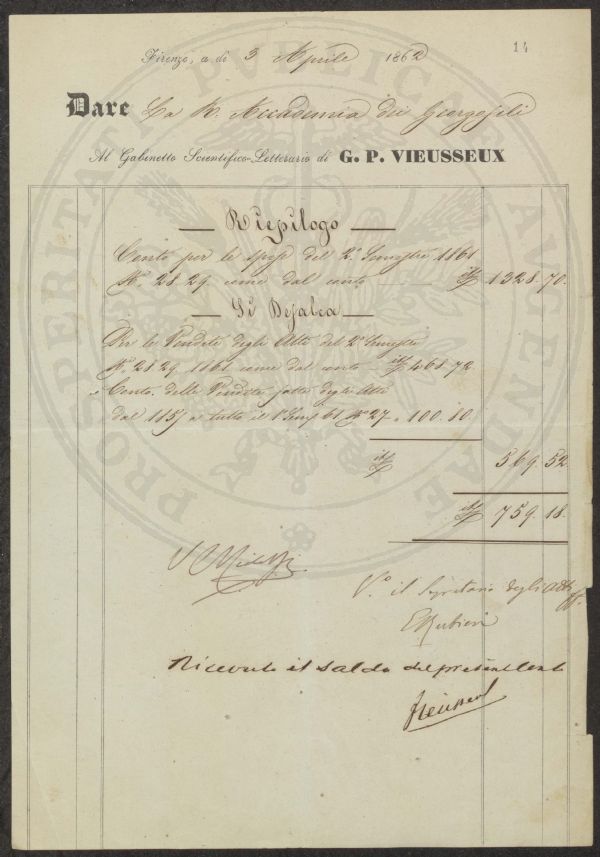 14
Firenze, a dì 3 Aprile 1862
Dare La R. Accademia dei Georgofili
Al Gabinetto Scientifico-Letterario di G. P. VIEUSSEUX
Riepilogo
Conto per le spese del 2º Semestre 1861
Nº 28 29 come dal conto 1328.70.
Si Defalca
Per le Vendite degli Atti del 2º Semestre
Nº 28 29. 1861 come dal conto 468.72
Conto delle Vendite fatte degli Atti
dal 1857 a tutto il 1º Sem 61 Nº 27 " 100.80.
569.52
759.18.
Vº il Segretario degli Atti
E Rubieri
Ricevuto il saldo del presente conto
Vieusseux
PROSPERITATI PUBLICAE AUGENDAE